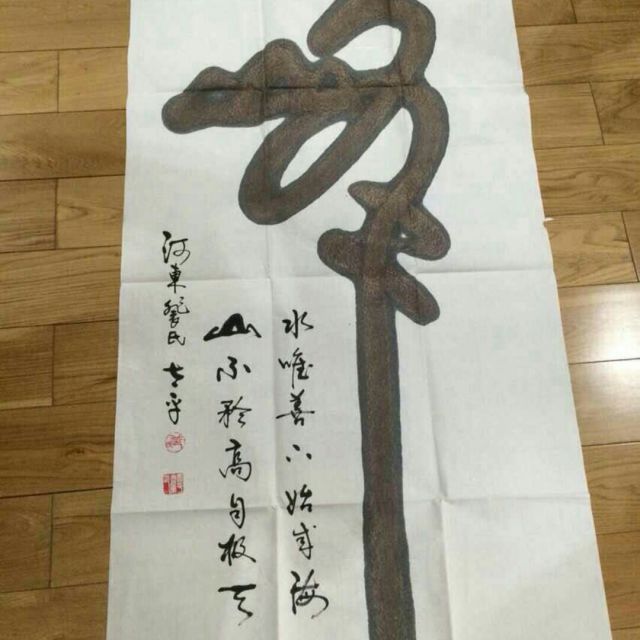 水唯善下始成海
山不矜高自极天
河東 民 平